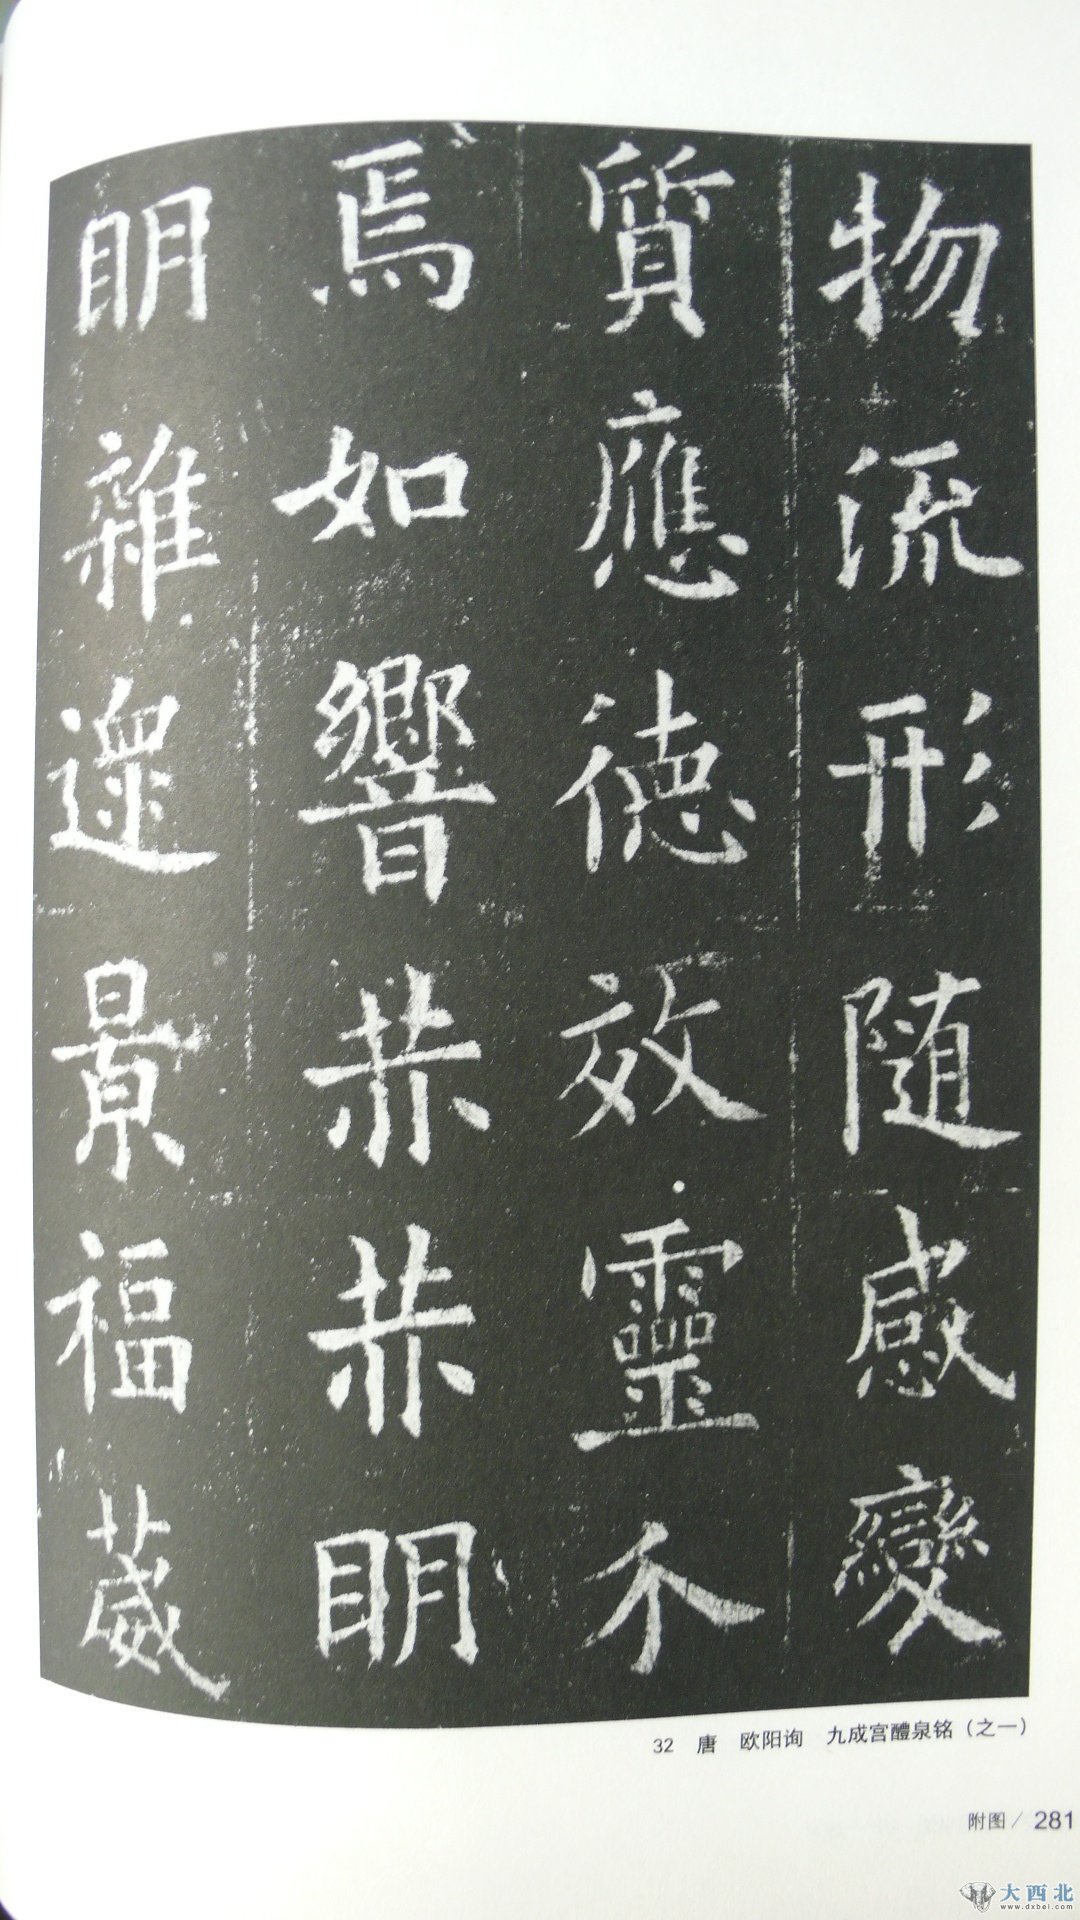 物流形随感變
質應德效靈不
焉如響赫赫明
明雜遝景福葳
32 唐 欧阳询 九成宫醴泉铭（之一）
附图／281
大西北
www.dxbei.com